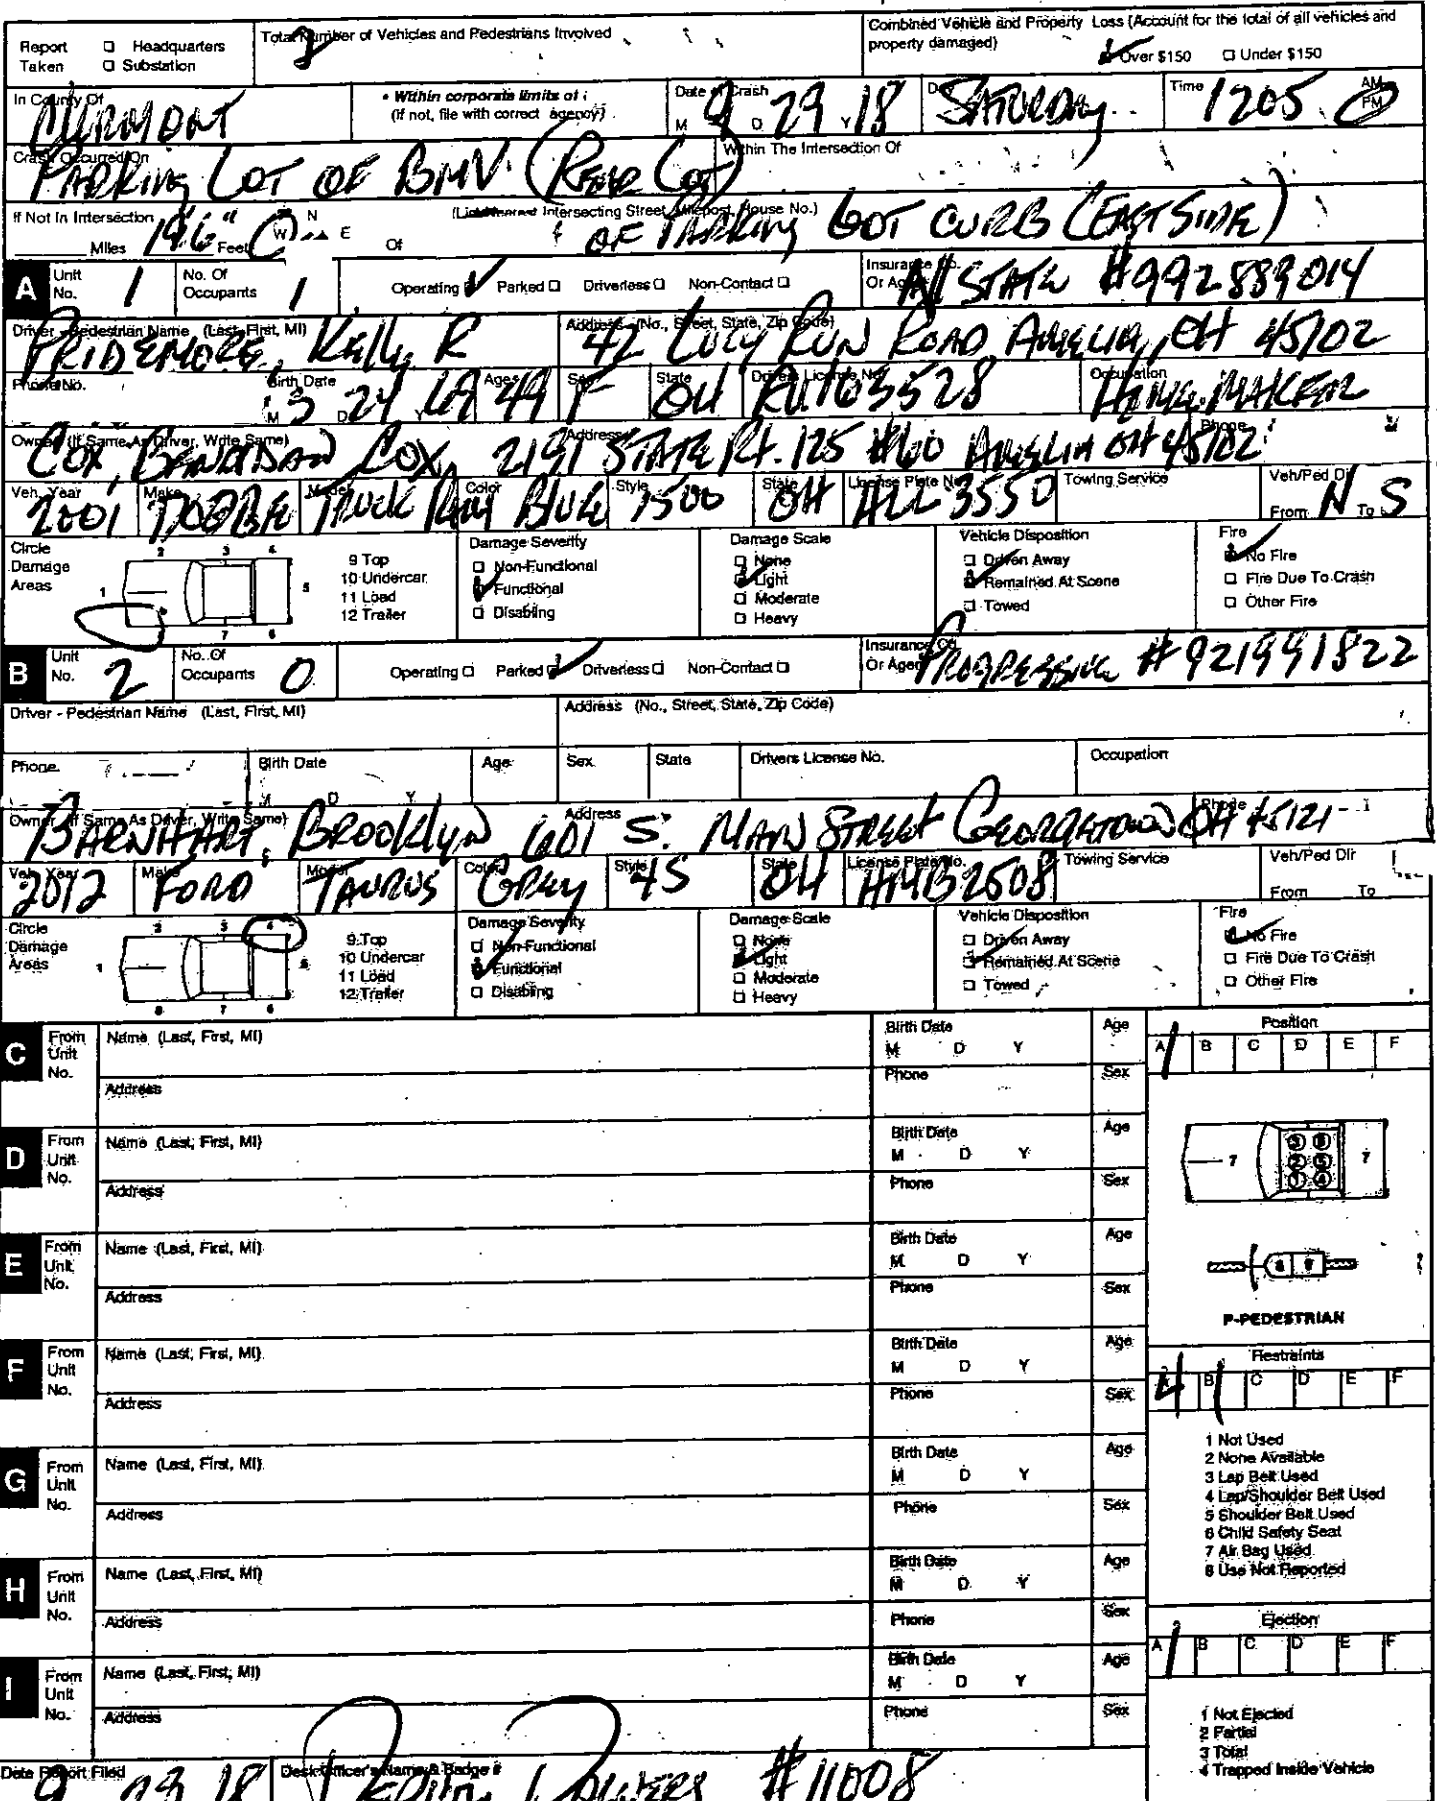 Report Taken ☐ Headquarters ☐ Substation
Total Number of Vehicles and Pedestrians Involved 2
Combined Vehicle and Property Loss (Account for the total of all vehicles and property damaged) ☑ Over $150 ☐ Under $150
In County Of CLERMONT
• Within corporate limits of : (If not, file with correct agency)
Date of Crash M 9 D 29 Y 18 Day SATURDAY Time 1205 AM PM
Crash Occurred On PARKING LOT OF BMV (REAR LOT) Within The Intersection Of
If Not In Intersection Miles 19'6" Feet N W E Of (List Nearest Intersecting Street, Milepost, House No.) OF PARKING LOT CURB (EAST SIDE)
A Unit No. 1 No. Of Occupants 1 Operating ☑ Parked ☐ Driverless ☐ Non-Contact ☐ Insurance Co. Or Agent All STATE #992889014
Driver - Pedestrian Name (Last, First, MI) PRIDEMORE, Kelly R Address (No., Street, State, Zip Code) 42 LUCY RUN ROAD AMELIA, OH 45102
Phone No. Birth Date M 3 D 24 Y 69 Age 49 Sex F State OH Drivers License No. RU163528 Occupation HOME MAKER
Owner (If Same As Driver, Write Same) COX, COX, Address 2191 STATE Rt. 125 #60 AMELIA OH 45102 Phone
Veh. Year 2001 Make DODGE Model TRUCK RAM Color BLUE Style 1500 State OH License Plate No. HLL 3550 Towing Service Veh/Ped Dir From N To S
Circle Damage Areas 1 2 3 4 5 6 7 8 9 Top 10 Undercar 11 Load 12 Trailer
Damage Severity ☐ Non-Functional ☑ Functional ☐ Disabling
Damage Scale ☐ None ☑ Light ☐ Moderate ☐ Heavy
Vehicle Disposition ☐ Driven Away ☑ Remained At Scene ☐ Towed
Fire ☑ No Fire ☐ Fire Due To Crash ☐ Other Fire
B Unit No. 2 No. Of Occupants 0 Operating ☐ Parked ☑ Driverless ☐ Non-Contact ☐ Insurance Co. Or Agent PROGRESSIVE #921991822
Driver - Pedestrian Name (Last, First, MI) Address (No., Street, State, Zip Code)
Phone Birth Date M D Y Age Sex State Drivers License No. Occupation
Owner (If Same As Driver, Write Same) BARNHART, BROOKLYN Address 601 S. MAIN STREET GEORGETOWN OH 45121 Phone
Veh. Year 2012 Make FORD Model TAURUS Color GREY Style 4S State OH License Plate No. HMB2508 Towing Service Veh/Ped Dir From To
Circle Damage Areas 1 2 3 4 5 6 7 8 9 Top 10 Undercar 11 Load 12 Trailer
Damage Severity ☐ Non-Functional ☑ Functional ☐ Disabling
Damage Scale ☐ None ☑ Light ☐ Moderate ☐ Heavy
Vehicle Disposition ☐ Driven Away ☑ Remained At Scene ☐ Towed
Fire ☑ No Fire ☐ Fire Due To Crash ☐ Other Fire
C From Unit No. Name (Last, First, MI) Birth Date M D Y Age
Address Phone Sex
Position A 1 B C D E F
D From Unit No. Name (Last, First, MI) Birth Date M D Y Age
Address Phone Sex
7 3 6 2 5 1 4 7
E From Unit No. Name (Last, First, MI) Birth Date M D Y Age
Address Phone Sex
P-PEDESTRIAN
F From Unit No. Name (Last, First, MI) Birth Date M D Y Age
Address Phone Sex
Restraints A 4 B 1 C D E F
1 Not Used
2 None Available
3 Lap Belt Used
4 Lap/Shoulder Belt Used
5 Shoulder Belt Used
6 Child Safety Seat
7 Air Bag Used
8 Use Not Reported
G From Unit No. Name (Last, First, MI) Birth Date M D Y Age
Address Phone Sex
H From Unit No. Name (Last, First, MI) Birth Date M D Y Age
Address Phone Sex
Ejection A 1 B C D E F
I From Unit No. Name (Last, First, MI) Birth Date M D Y Age
Address Phone Sex
1 Not Ejected
2 Partial
3 Total
4 Trapped Inside Vehicle
Date Report Filed 9 29 18 Desk Officer's Name & Badge # #11008